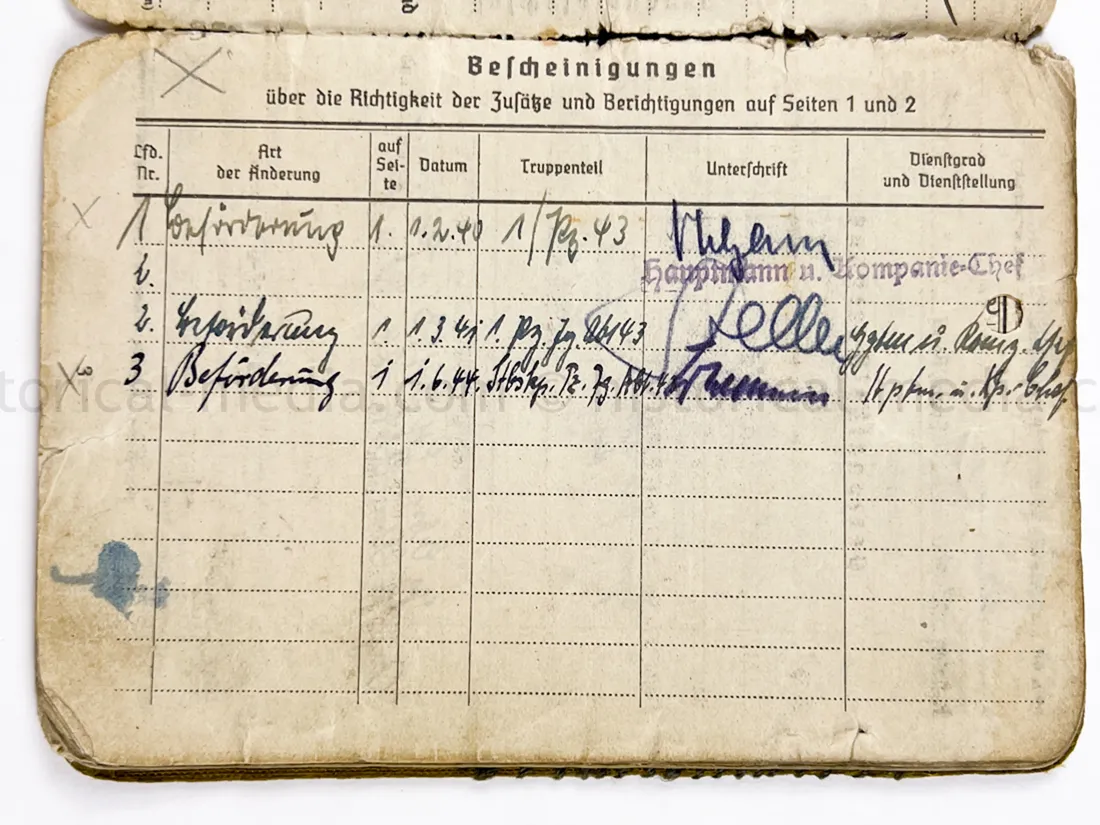 Bescheinigungen
über die Richtigkeit der Zusätze und Berichtigungen auf Seiten 1 und 2
Lfd. Nr. Art der Änderung auf Sei-te Datum Truppenteil Unterschrift Dienstgrad und Dienststellung
1 Beförderung 1. 1.2.40 1/Pz. 43
Hauptmann u. Kompanie-Chef
2.
2. Beförderung 1 1.3.41 1. Pz Jg Abt 43 Hptm u. Komp. Chef
3 Beförderung 1 1.6.44. Stbskp. Pz. Jg. Abt. 43 Hptm. u. Kp.-Chef
3